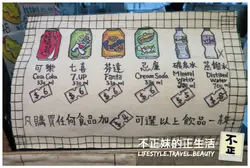 可樂 七喜 芬達 忌廉 礦泉水 蒸餾水
Coca Cola 7.UP Fanta Cream Soda Mineral Water Distilled Water
330ml 330ml 330ml 330ml
$6 $6 $6 $6
凡購買任何食品加 可選以上飲品一杯
不正
不正妹的正生活
LIFESTYLE.TRAVEL.BEAUTY